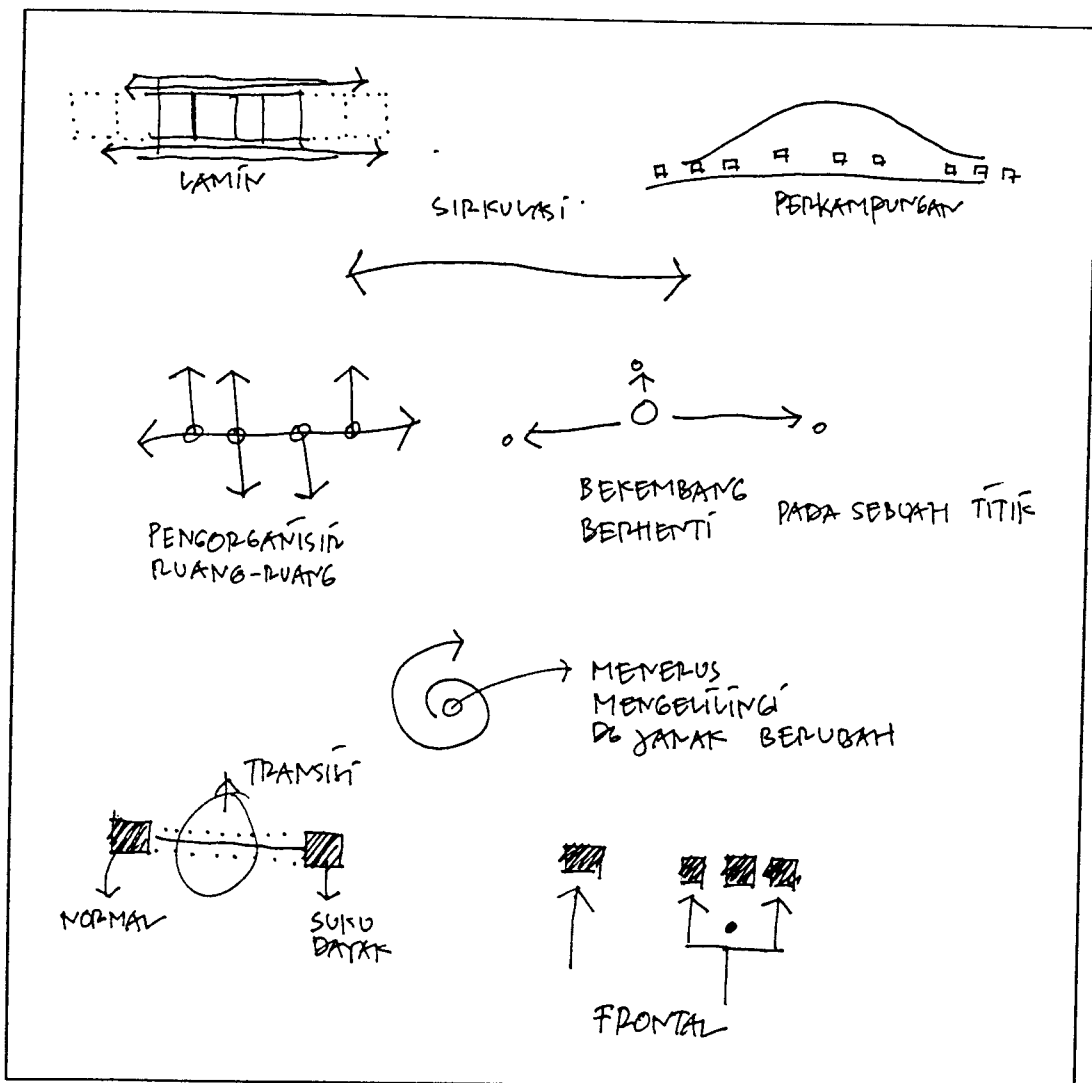 LAMIN
SIRKULASI
PERKAMPUNGAN
PENGORGANISIR
RUANG-RUANG
BEKEMBANG
BERHENTI
PADA SEBUAH TITIK
MENERUS
MENGELILINGI
DG JARAK BERUBAH
TRANSISI
NORMAL
SUKU
DAYAK
FRONTAL